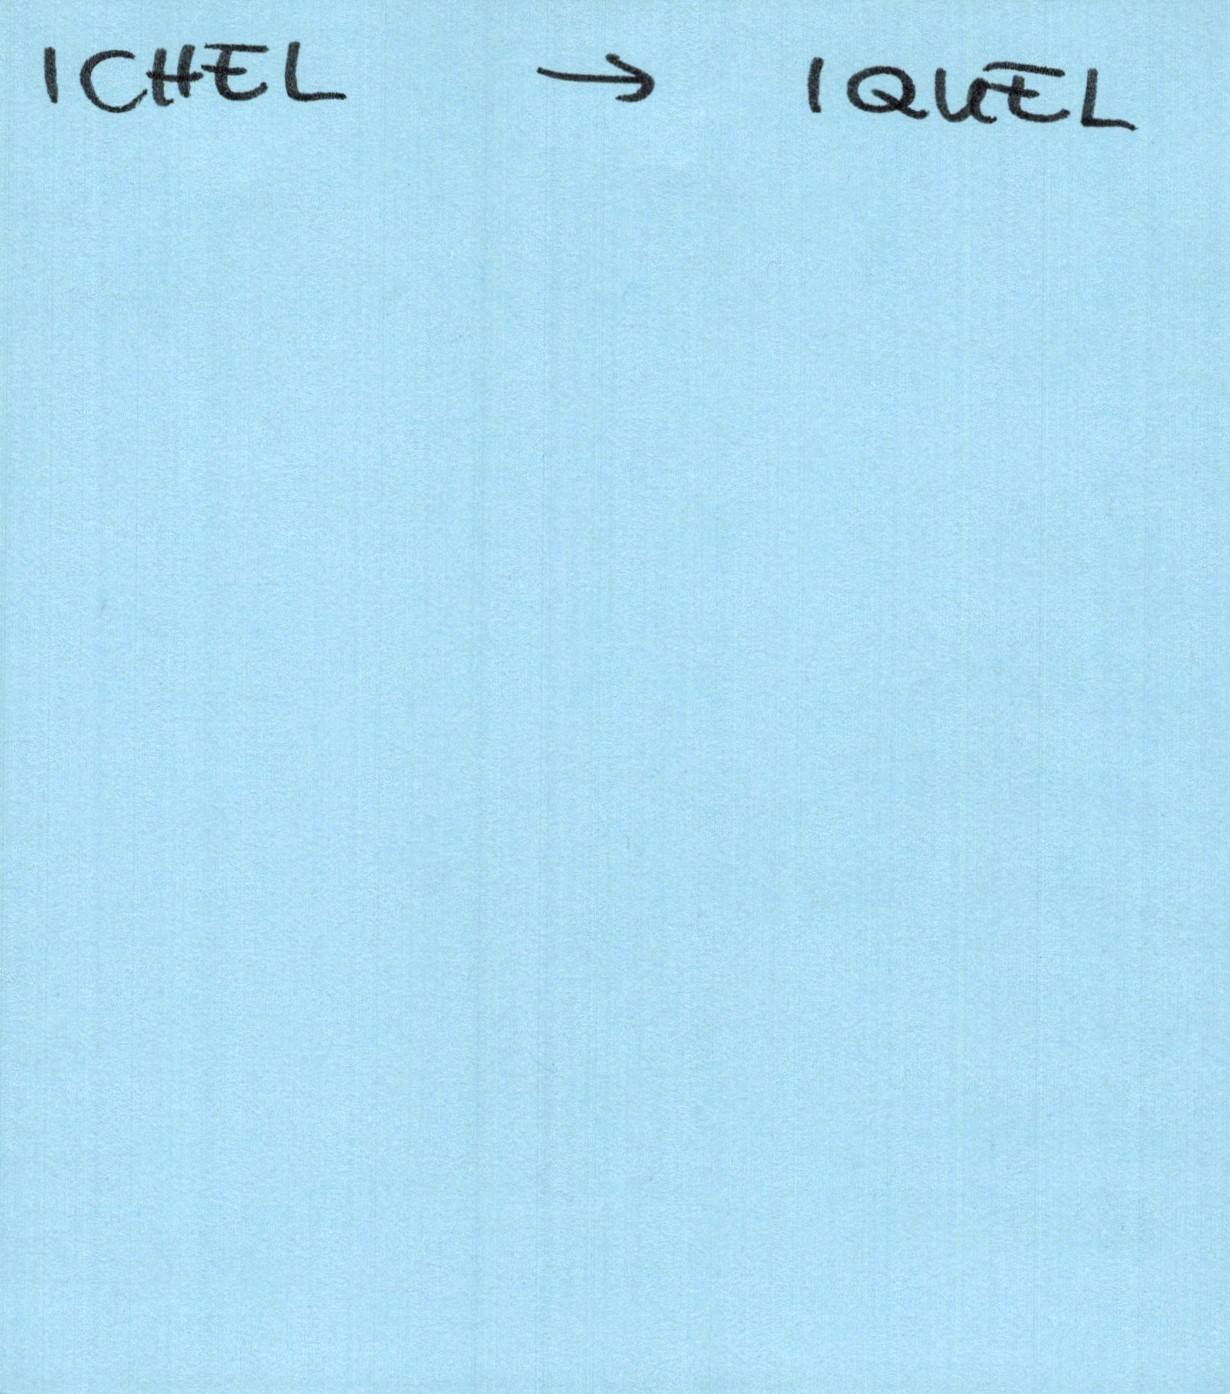 ICHEL → IQUEL